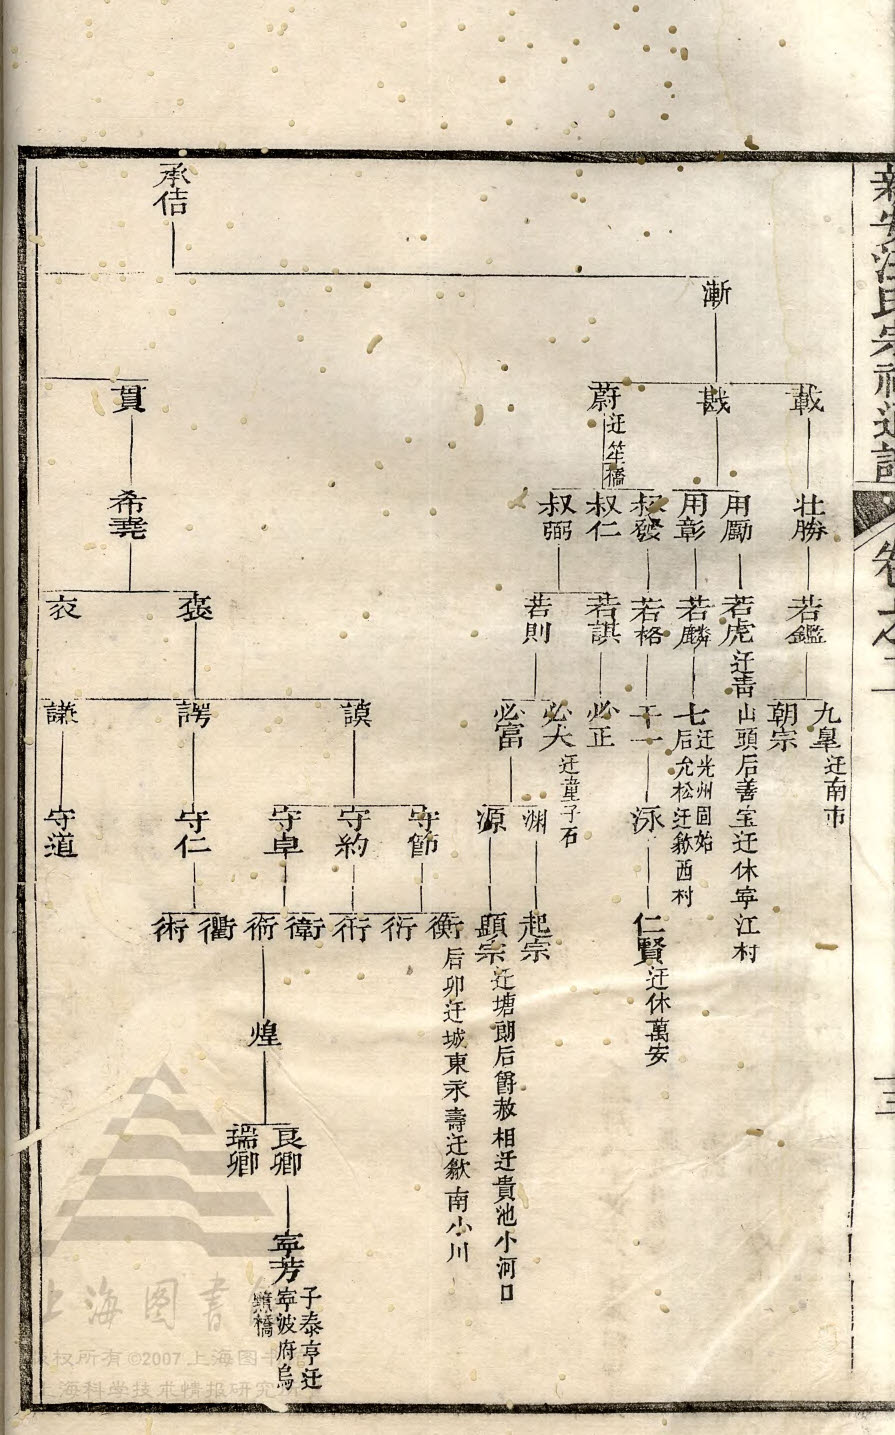 新安汪氏宗祠通譜
卷之二
三
承佶
漸
載
戡
蔚
迁笙橋
貫
壮勝
用勵
用彰
叔發
叔仁
叔弼
希堯
若鑑
若虎
迁青山頭后善宝迁休寧江村
若麟
若格
若諆
若則
袞
衣
九皐
迁南市
朝宗
七
迁光州固始
后允松迁歙西村
千一
必正
必大
迁童子石
必富
謨
諤
謙
泳
渊
源
守節
守約
守卓
守仁
守道
仁賢
迁休萬安
起宗
顕宗
迁塘朗后爵赦相迁貴池小河口
衡
后卯迁城東永壽迁歙南小川
衍
衎
衛
衕
衢
術
煌
良卿
瑞卿
寧芳
子泰亨迁
寧波府烏
橋
上海图书馆
版权所有©2007上海图书
上海科学技术情报研究